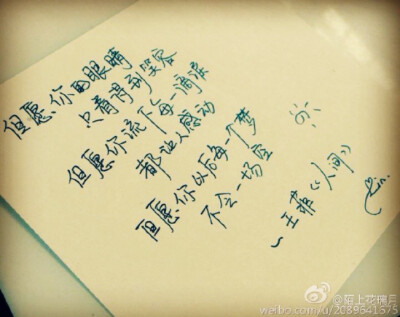 但愿你的眼睛
只看得到笑容
但愿你流下每一滴泪
都让人感动
但愿你以后每一个梦
不会一场空
—王菲《人间》
@陌上花瑰月
weibo.com/u/2089641575